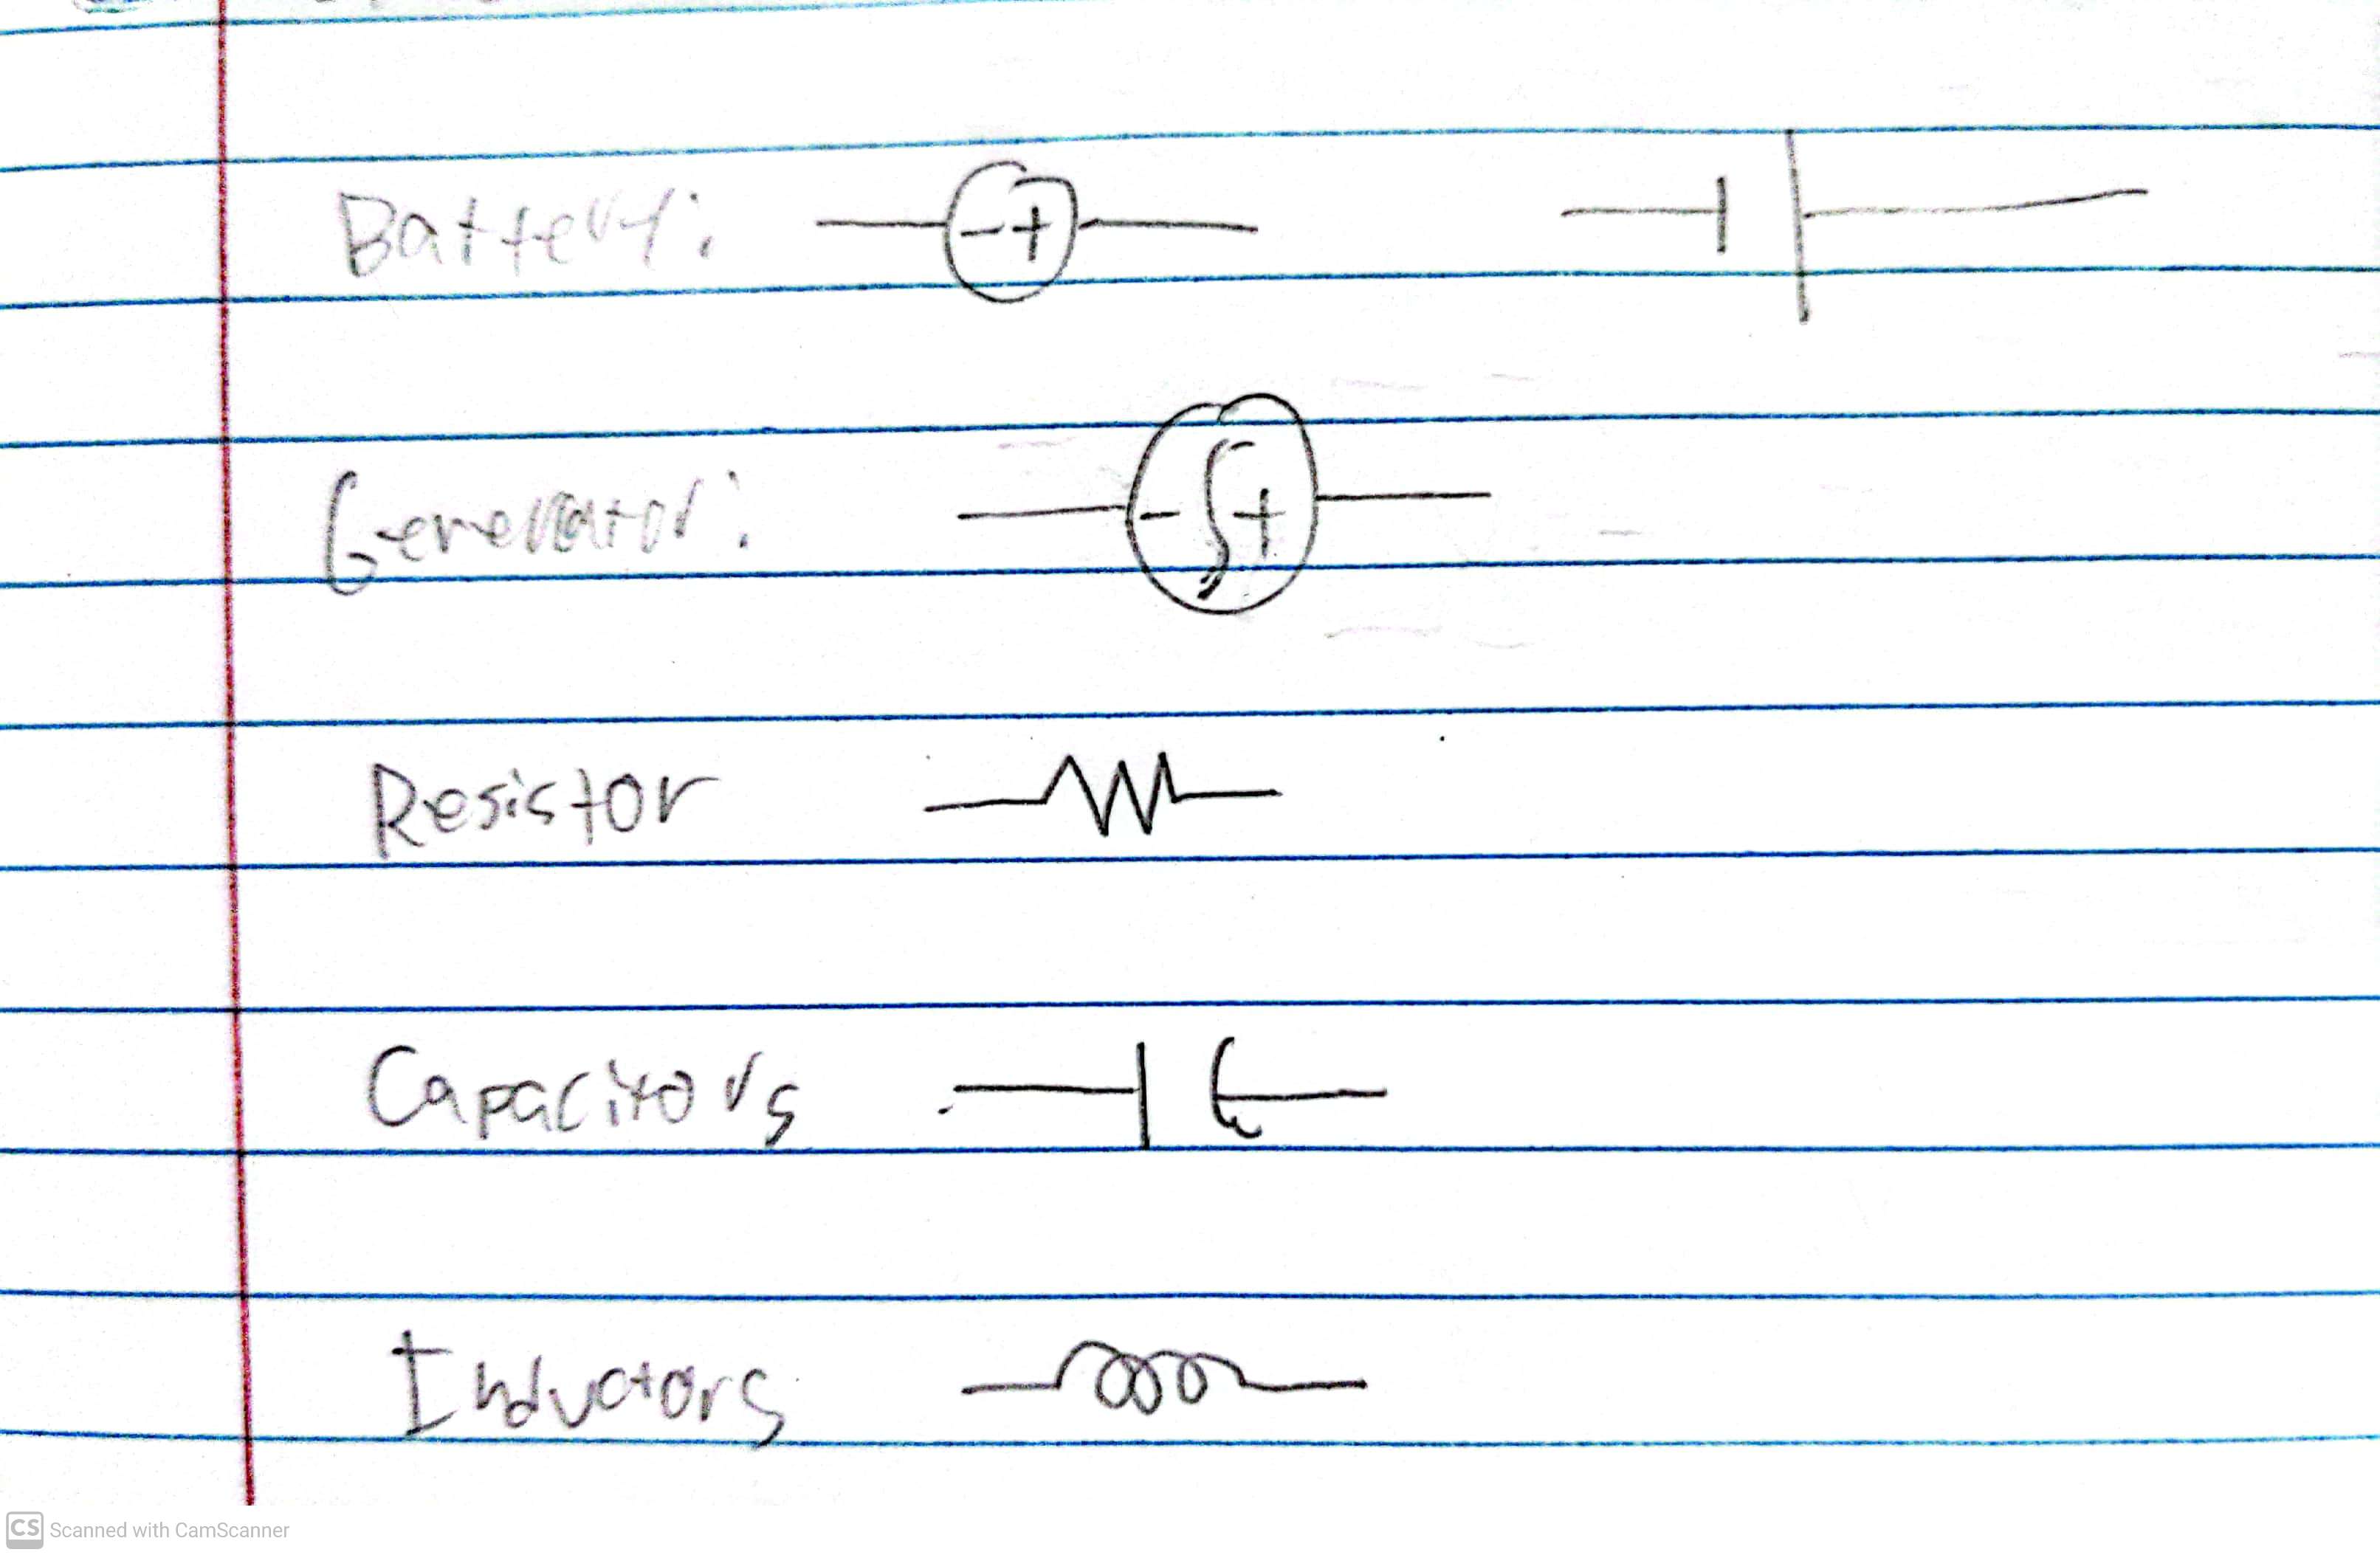 Battery: - +
Generator: - +
Resistor
Capacitors
Inductors
CS Scanned with CamScanner